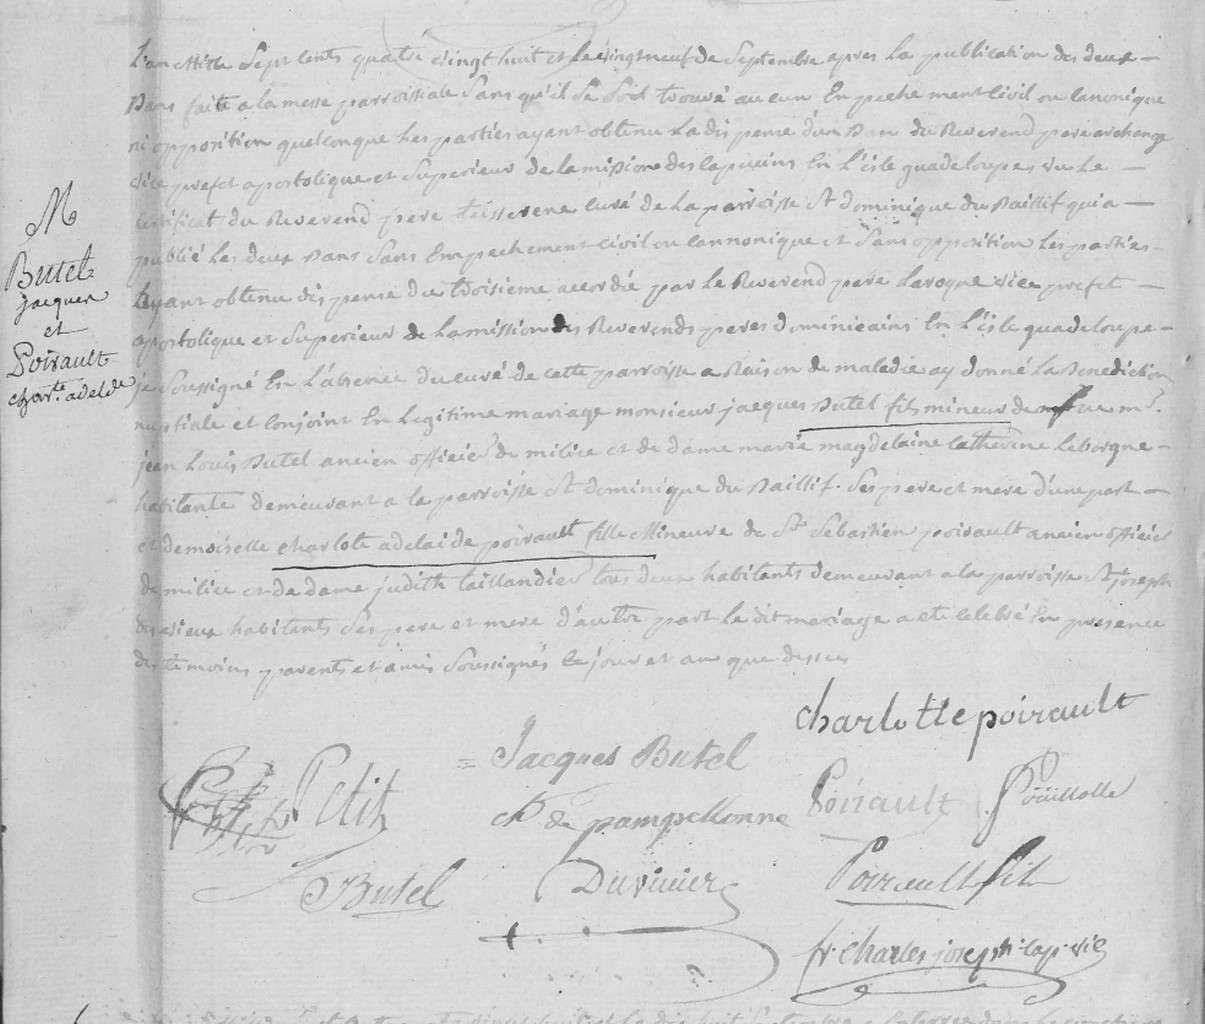 M
Butel
jacques
et
Poirault
charte. adelde
L'an Mille Sept Cents quatre vingt huit et le vingt neuf de Septembre apres la publication des deux
Bans faite a la messe parroissiale Sans qu'il Se Soit trouvé aucun Empechement Civil ou Canonique
ni opposition quelconque Les parties ayant obtenu La dispense d'un Ban du Reverend pere archange
vice prefet apostolique et Superieur de la mission des Capucins En L'isle guadeloupe, vu Le
certificat du Reverend pere teisserene Curé de La parroisse St dominique du Baillif qui a
publié Les deux Bans Sans Empechement Civil ou Cannonique et Sans opposition Les parties
ayant obtenu dispense du troisieme accordé par Le Reverend pere Laroque vice prefet
apostolique et Superieur de La mission des Reverends peres dominicains En L'isle guadeloupe
je Soussigné En L'absence du curé de cette parroisse a Raison de maladie ay donné La Benediction
nuptiale et Conjoint En Legitime mariage monsieur jacques Butel fils mineur de feu mr.
jean Louis Butel ancien officier de milice et de dame marie magdelaine Catherine Leborgne
habitante demeurant a la parroisse St dominique du Baillif. Ses pere et mere d'une part
et demoiselle charlote adelaide poirault fille Mineure de Sr Sebastien poirault ancien officier
de milice et de dame judith taillandier tous deux habitants demeurant a la parroisse St joseph
des vieux habitants Ses pere et mere d'autre part Le dit mariage a eté Celebré En presence
des temoins parents et amis Soussignés Le jour et an que dessus
charlotte poirault
Jacques Butel
Petit
ch de pampellonne
Poirault
Pouillolle
Butel
Duvivier
Poirault fils
fr. charles joseph. cap. vic